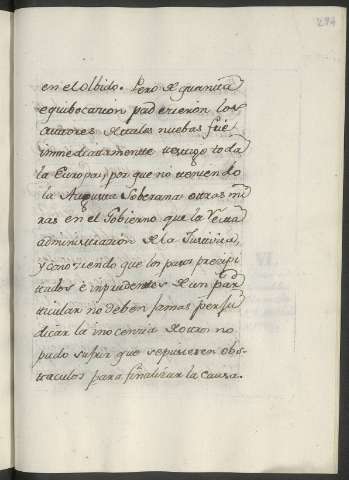 en el olbido. Pero de quanta
equibocacion padecieron los
autores de tales nuebas fue
immediatamente testigo toda
la Europa, por que no teniendo
la Augusta Soberana otras mi-
ras en el Gobierno que la recta
administracion de la Justicia,
y conociendo que los pasos precipi
tados è inprudentes de un par
ticular no deben jamas perju
dicar la inocencia de otro no
pudo sufrir que sepusiesen obs-
taculos para finalizar la causa.